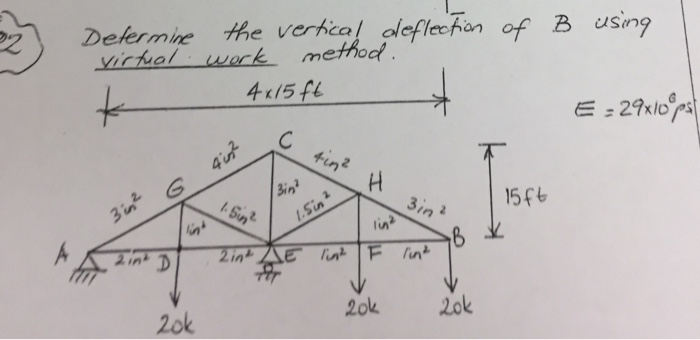 22
Determine the vertical deflection of B using
virtual work method.
4x15 ft
E = 29x10⁶psi
C
4in²
4in²
G
3in²
H
3in²
1.5in²
1.5in²
3in²
15ft
1in²
1in²
A
B
2in²
D
2in²
E
1in²
F
1in²
20k
20k
20k